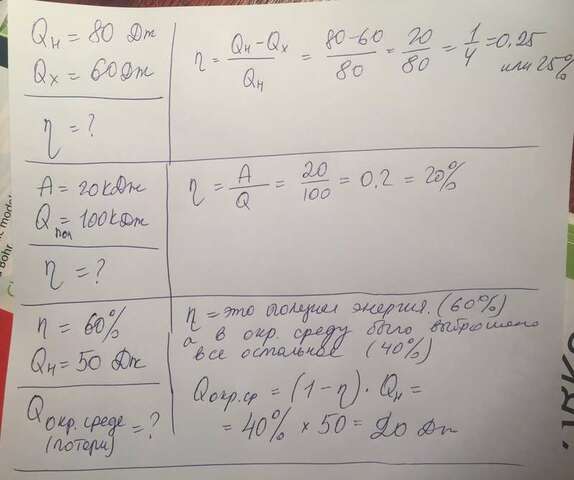 Qн = 80 Дж
Qх = 60 Дж
η = ?
η = Qн-Qх / Qн = 80-60 / 80 = 20 / 80 = 1 / 4 = 0,25
или 25%
A = 20кДж
Qпол = 100кДж
η = ?
η = A / Q = 20 / 100 = 0,2 = 20%
η = 60%
Qн = 50 Дж
Qокр. среде = ?
(потери)
η = это полезная энергия. (60%)
а в окр. среду было выброшено
все остальное (40%)
Qокр.ср = (1-η) · Qн =
= 40% × 50 = 20 Дж